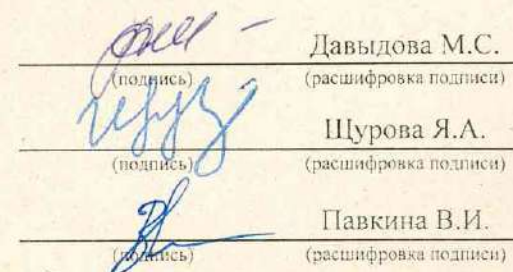 Давыдова М.С.
(подпись) (расшифровка подписи)
Щурова Я.А.
(подпись) (расшифровка подписи)
Павкина В.И.
(подпись) (расшифровка подписи)